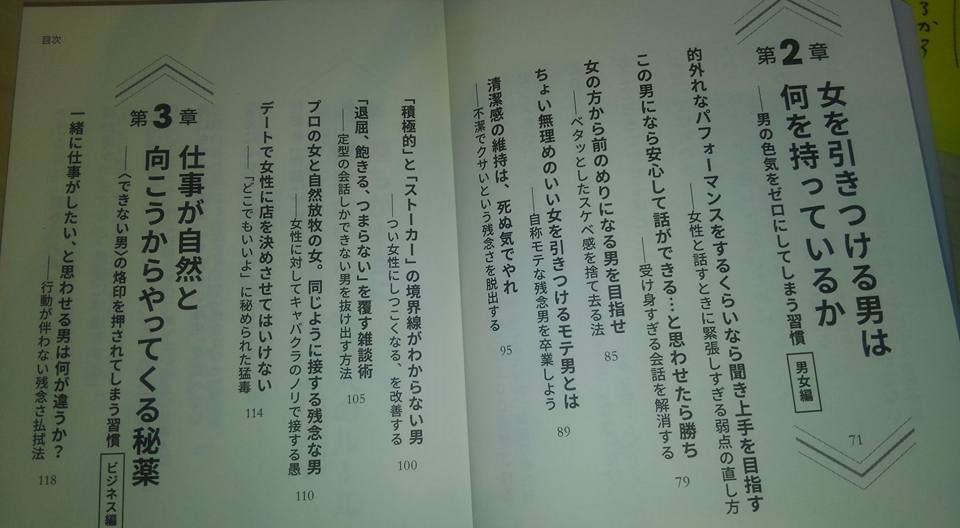 第2章
女を引きつける男は
何を持っているか
――男の色気をゼロにしてしまう習慣
男女編
71
的外れなパフォーマンスをするくらいなら聞き上手を目指す
――女性と話すときに緊張しすぎる弱点の直し方
この男になら安心して話ができる…と思わせたら勝ち
――受け身すぎる会話を解消する
79
女の方から前のめりになる男を目指せ
――ベタッとしたスケベ感を捨て去る法
85
ちょい無理めのいい女を引きつけるモテ男とは
――自称モテな残念男を卒業しよう
89
清潔感の維持は、死ぬ気でやれ
――不潔でクサいという残念さを脱出する
95
目次
「積極的」と「ストーカー」の境界線がわからない男
――つい女性にしつこくなる、を改善する
100
「退屈、飽きる、つまらない」を覆す雑談術
――定型の会話しかできない男を抜け出す方法
105
プロの女と自然放牧の女。同じように接する残念な男
――女性に対してキャバクラのノリで接する愚
110
デートで女性に店を決めさせてはいけない
――「どこでもいいよ」に秘められた猛毒
114
第3章
仕事が自然と
向こうからやってくる秘薬
――〈できない男〉の烙印を押されてしまう習慣
ビジネス編
一緒に仕事がしたい、と思わせる男は何が違うか？
――行動が伴わない残念さ払拭法
118